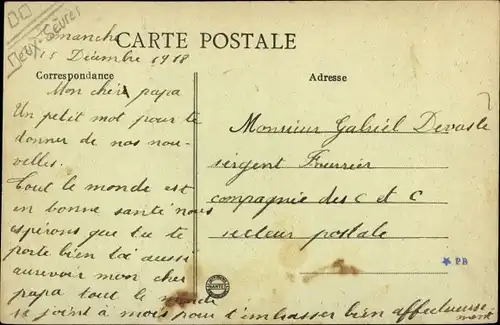 Deux-Sèvres
Dimanche
15 Décembre 1918
CARTE POSTALE
Correspondance
Adresse
Mon cher papa
Un petit mot pour te
donner de nos nou-
velles.
Tout le monde est
en bonne santé nous
espérons que tu te
porte bien toi aussi
aurevoir mon cher
papa tout le monde
se joint à mois pour t'embrasser bien affectueuse
ment
Monsieur Gabriel Devaste
sergent Fourrier
compagnie des C et C
secteur postale
PB